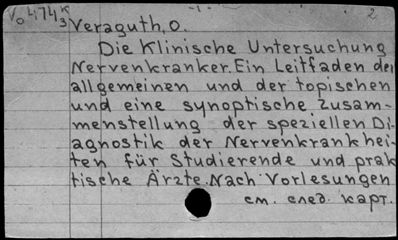 V₀ 474 K/3 2
Veraguth, O.
Die Klinische Untersuchung
Nervenkranker. Ein Leitfaden der
allgemeinen und der topischen
und eine synoptische Zusam-
menstellung der speziellen Di-
agnostik der Nervenkrankhei-
ten für Studierende und prak
tische Ärzte. Nach Vorlesungen
см. след. карт.